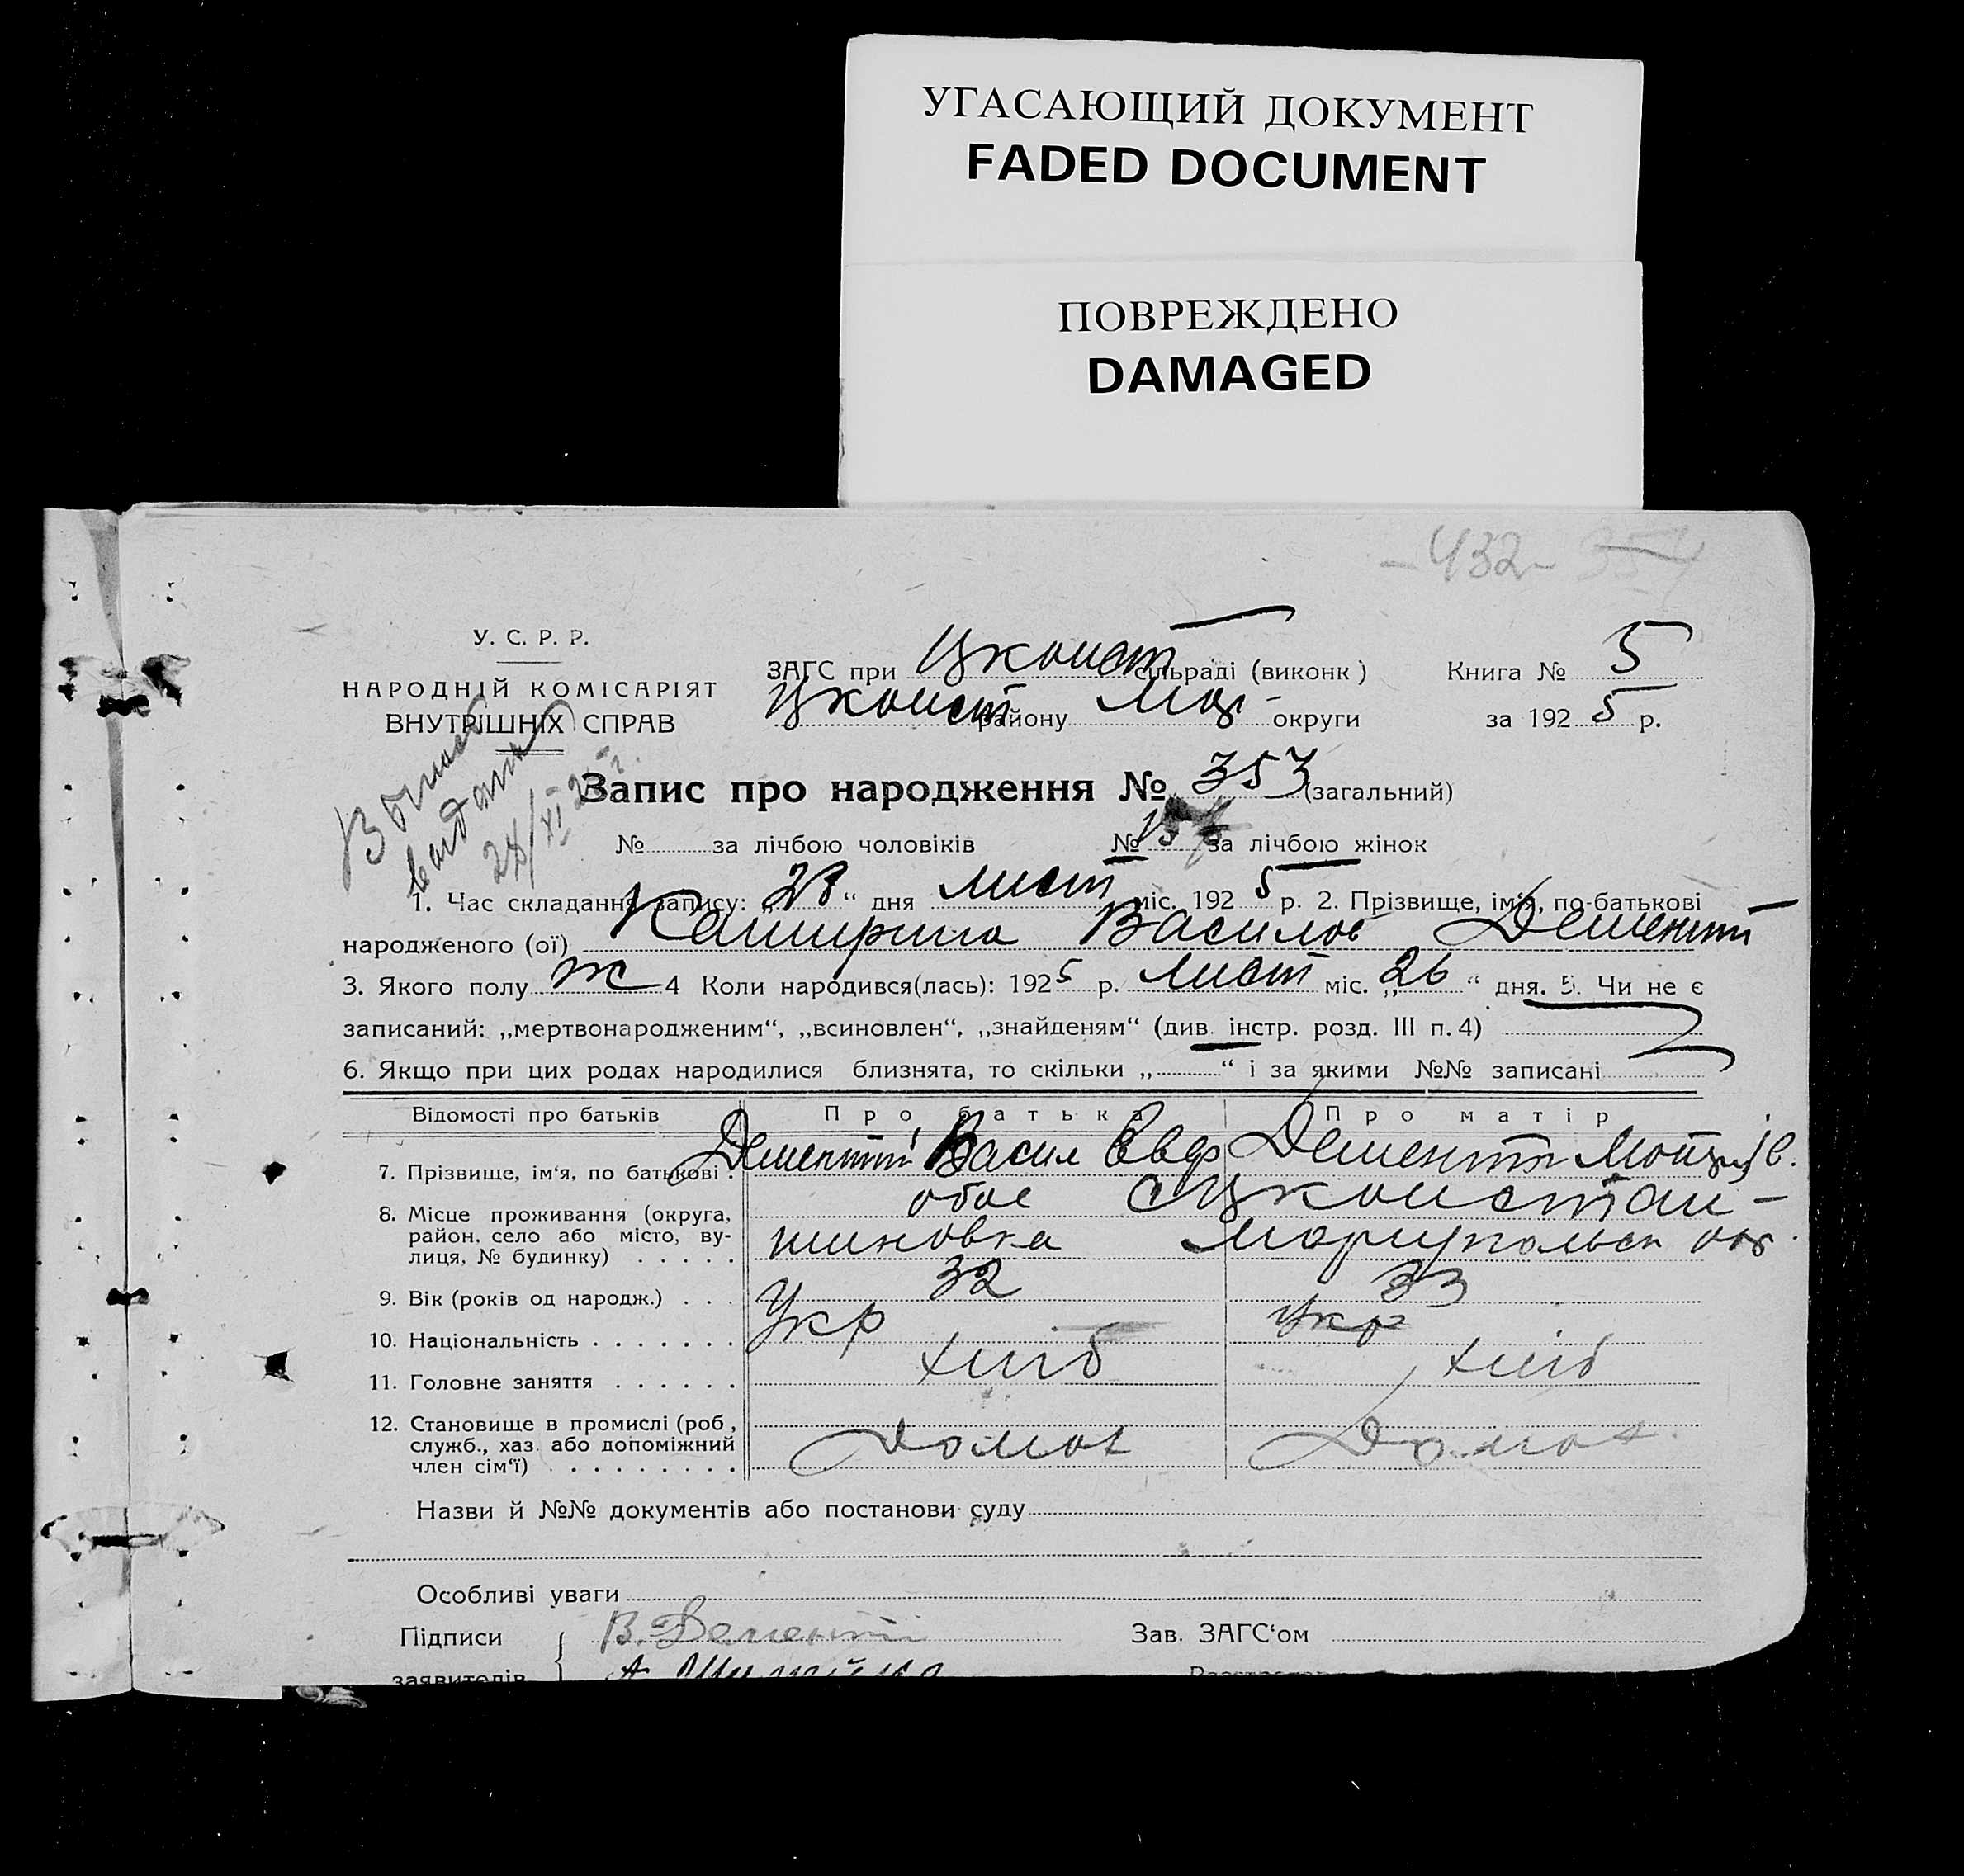 УГАСАЮЩИЙ ДОКУМЕНТ
FADED DOCUMENT
ПОВРЕЖДЕНО
DAMAGED
- 432 - 354
У. С. Р. Р.
НАРОДНІЙ КОМІСАРІЯТ
ВНУТРІШНІХ СПРАВ
ЗАГС при Цконст сільраді (виконк) Книга № 5
Цконст району Мар округи за 192 5 р.
видана
Запис про народження № 353 (загальний)
№ за лічбою чоловіків № за лічбою жінок
1. Час складання запису: „28“ дня лист міс. 192 5 р. 2. Прізвище, ім‘я, по-батькові
народженого (ої) Катирина Василов Дементій
3. Якого полу ж 4 Коли народився(лась): 1925 р. лист міс. „26“ дня. 5. Чи не є
записаний: „мертвонародженим“, „всиновлен“, „знайденям“ (див. інстр. розд. III п. 4)
6. Якщо при цих родах народилися близнята, то скільки „ “ і за якими №№ записані
Відомості про батьків Про батька Про матір
7. Прізвище, ім‘я, по батькові . Дементій Васил Дементій
8. Місце проживання (округа,
район, село або місто, ву-
лиця, № будинку) . . . . .
обое с Цконстан-
тиновка Мариупольск окр.
9. Вік (років од народж.) . . . 32 33
10. Національність . . . . . . . Укр Укр
11. Головне заняття . . . . . . хліб хліб
12. Становище в промислі (роб.,
служб., хаз. або допоміжний
член сім‘ї) . . . . . . . . .
домох домох.
Назви й №№ документів або постанови суду
Особливі уваги
Підписи В. Дементій Зав. ЗАГС‘ом
заявителів